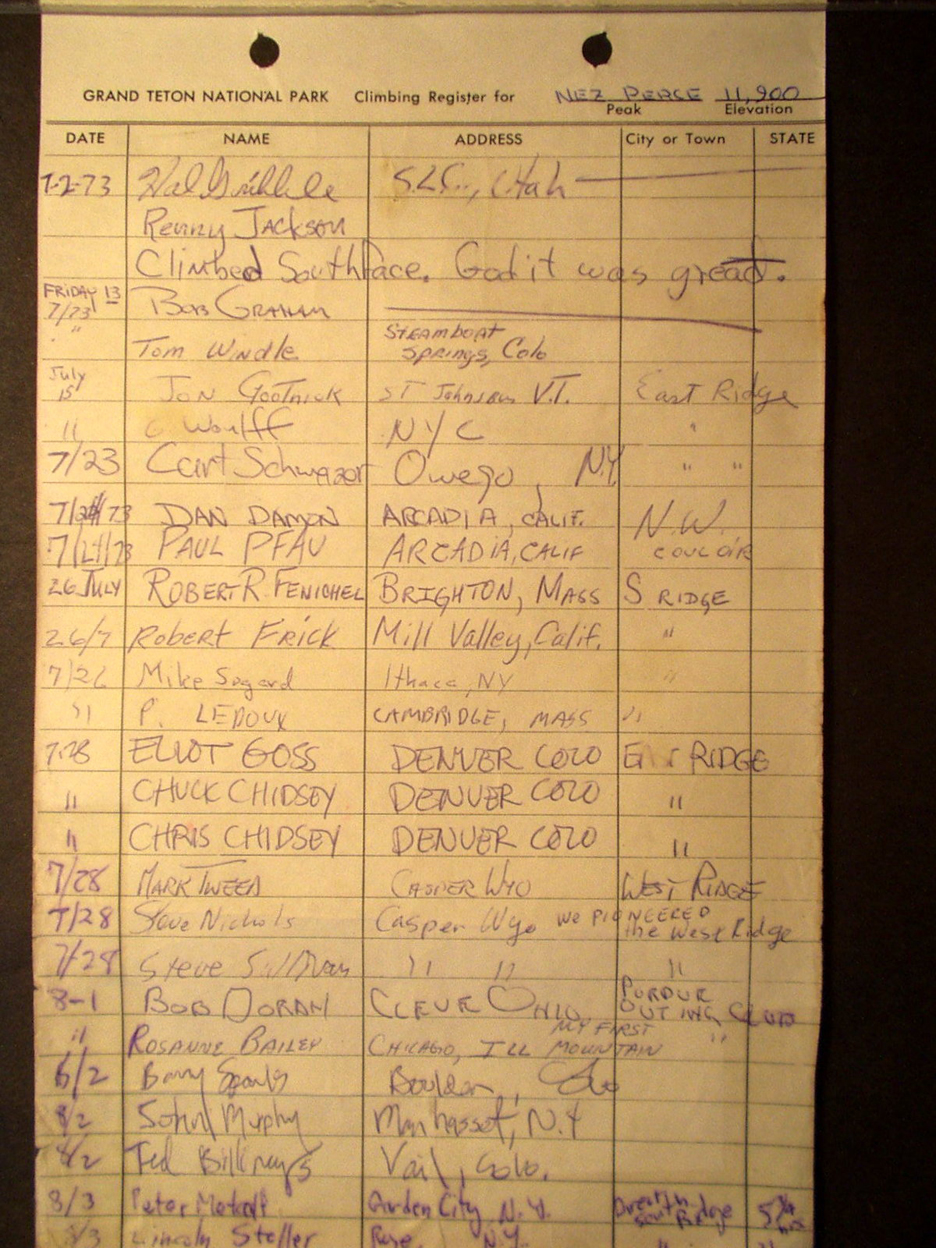 GRAND TETON NATIONAL PARK Climbing Register for NEZ PERCE 11,900
Peak Elevation
DATE NAME ADDRESS City or Town STATE
7-2-73 S.L.C., Utah
Renny Jackson
Climbed South face. God it was great.
FRIDAY 13
7/73 BOB GRAHAM
" Tom Windle Steamboat Springs, Colo
July 15 Jon ST Johnsbury V.T. East Ridge
" C. Woulff NYC "
7/23 Owego, N.Y. " "
7/24/73 DAN DAMON ARCADIA, CALIF. N.W.
7/24/73 PAUL PFAU ARCADIA, CALIF COULOIR
26 JULY ROBERT R. FENICHEL BRIGHTON, MASS S RIDGE
26/7 Robert Frick Mill Valley, Calif. "
7/26 Mike Sogard Ithaca, NY "
" P. LEDOUX CAMBRIDGE, MASS "
7-28 ELIOT GOSS DENVER COLO RIDGE
" CHUCK CHIDSEY DENVER COLO "
" CHRIS CHIDSEY DENVER COLO "
7/28 MARK TWEED CASPER WYO WEST RIDGE
7/28 Steve Nichols Casper Wyo we PIONEERED the West Ridge
7/28 Steve Sullivan " " "
8-1 BOB DORAN CLEVE OHIO PURDUE OUTING CLUB
" ROSANNE BAILEY CHICAGO, ILL MY FIRST MOUNTAIN "
8/2 Boulder, Colo
8/2 John Murphy Manhasset, N.Y
8/2 Ted Vail, Colo.
8/3 Peter Metcalf Garden City, N.Y.
8/3 Lincoln Stoller Rye, N.Y.